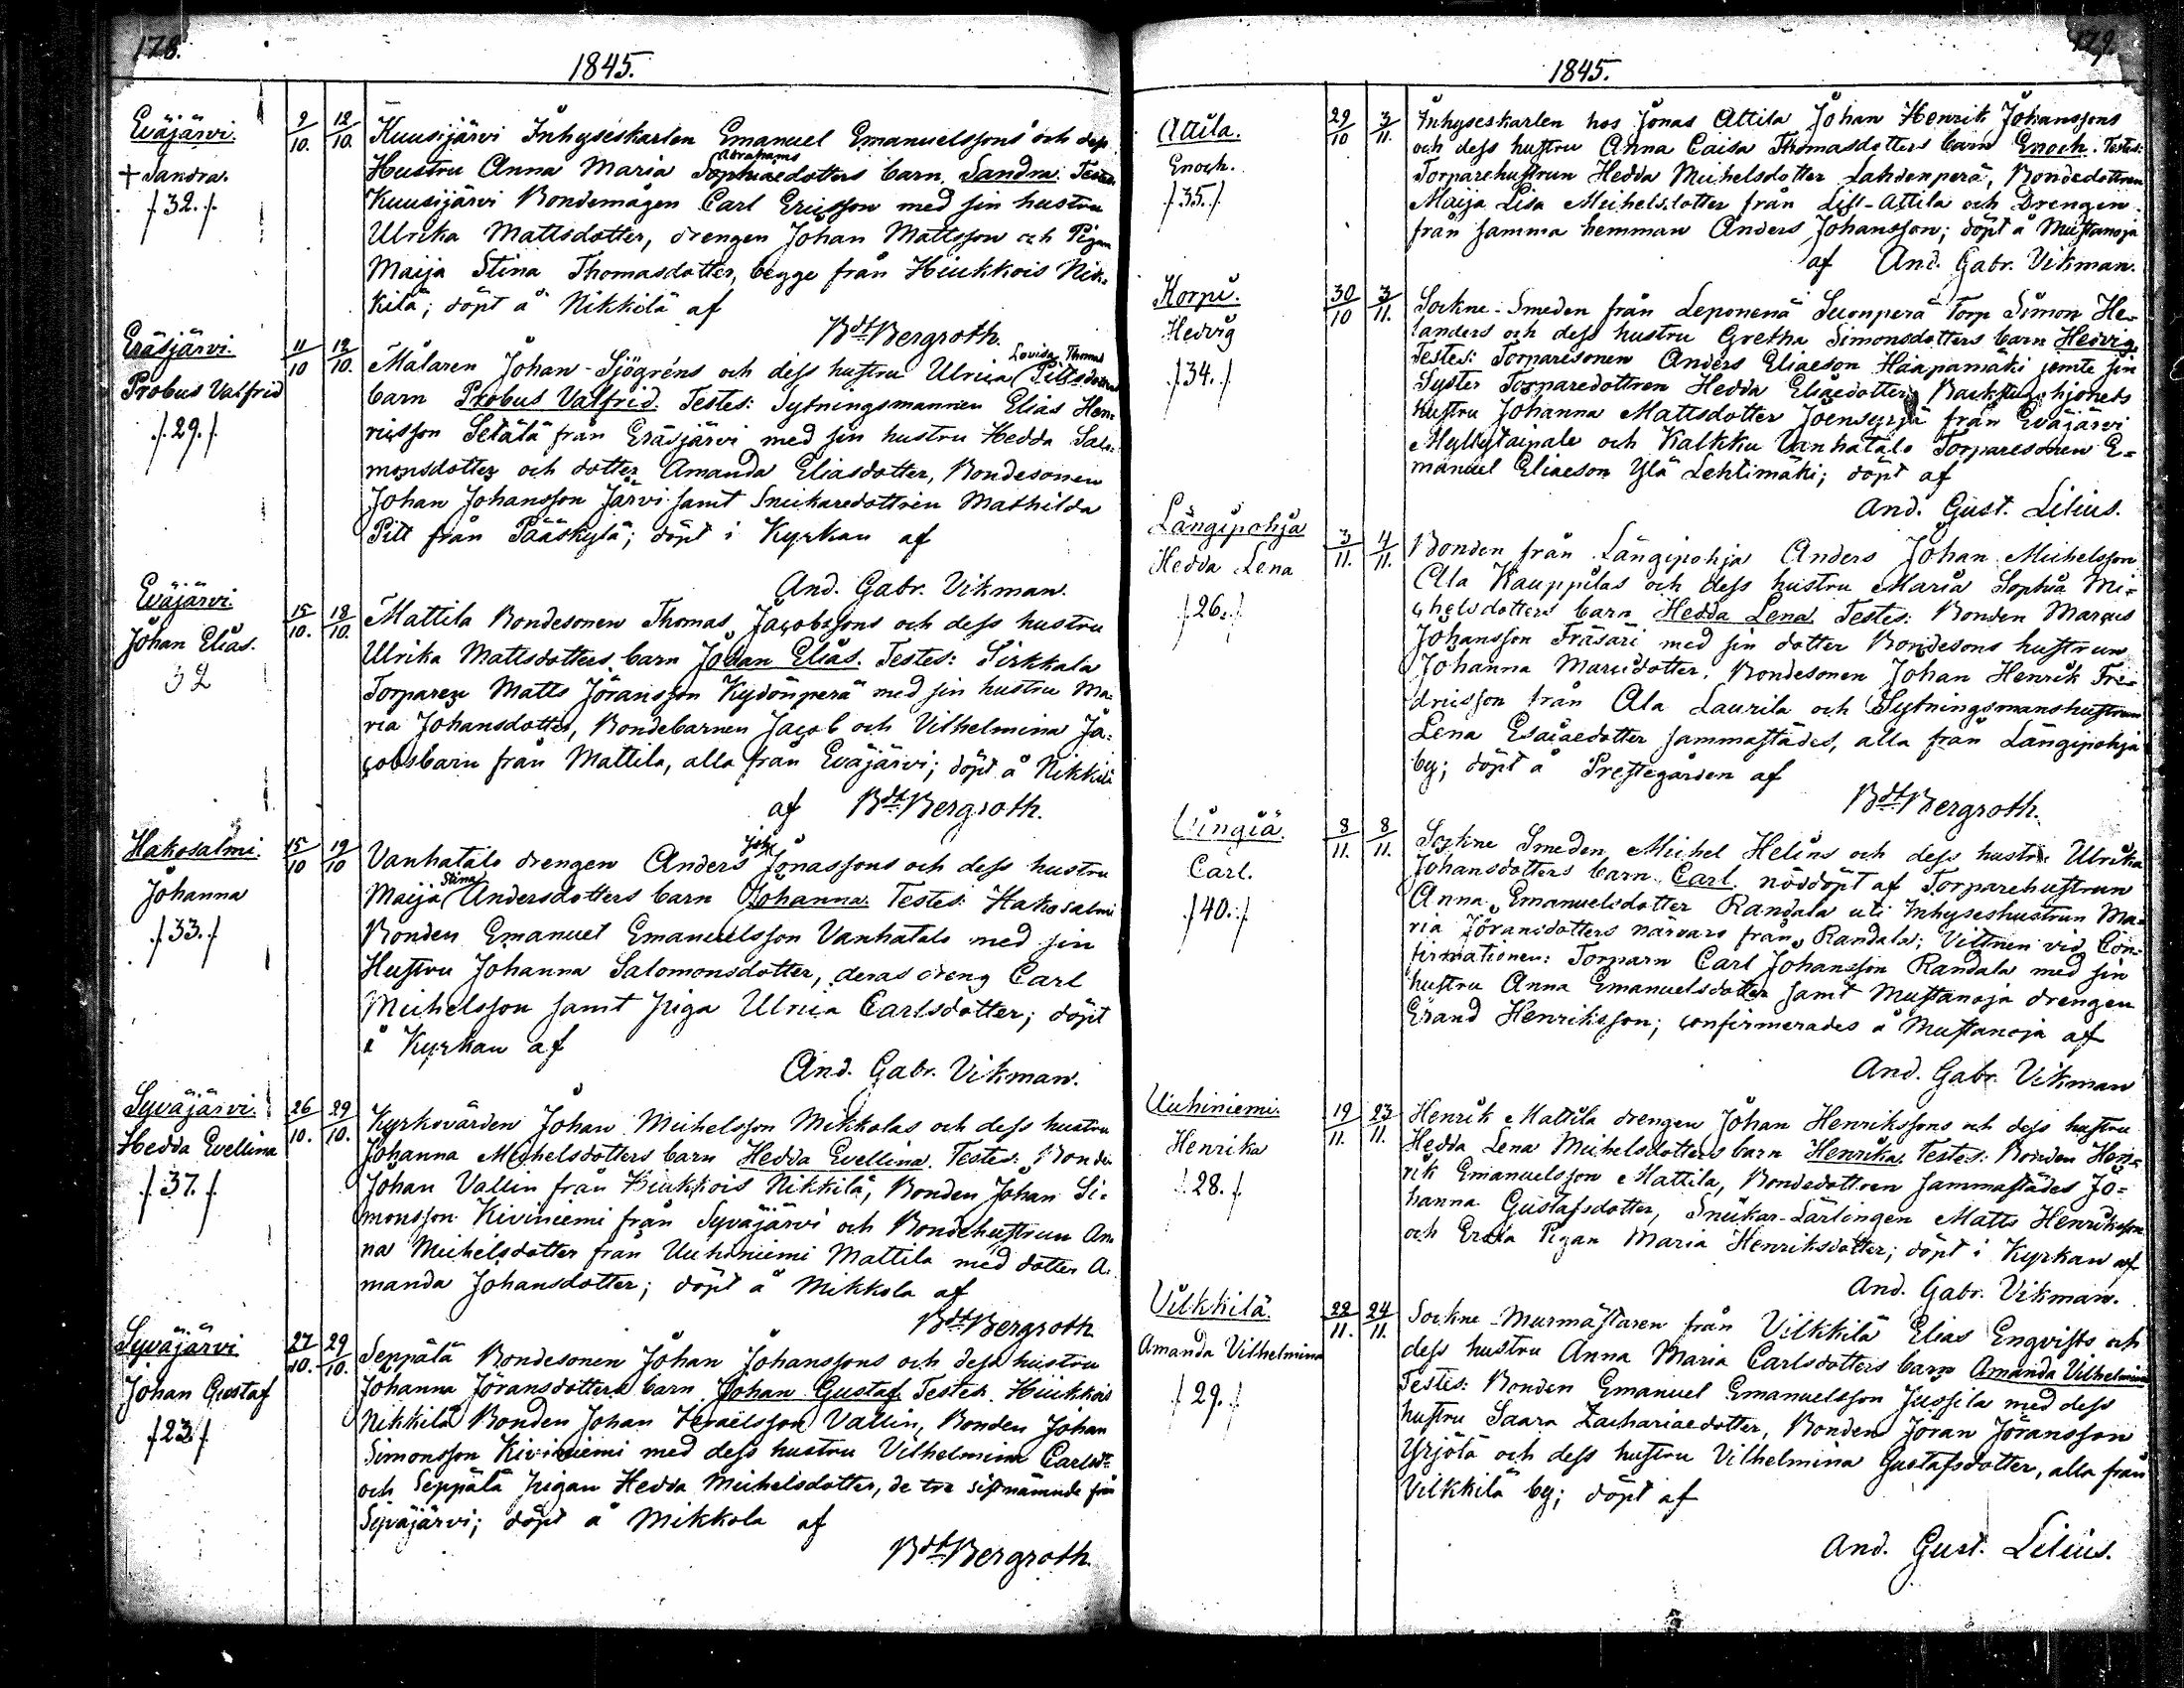 178.
1845.
Eväjärvi.
† Sandra.
/.32./.
9/10. 12/10. Kuusijärvi Inhyseskarlen Emanuel Emanuelssons och dess
Abrahams
Hustru Anna Maria Sophiaedotters barn Sandra. Testes:
Kuusijärvi Bondemågen Carl Ericsson med sin hustru
Ulrika Mattsdotter, drengen Johan Mattsson och Pigan
Maija Stina Thomasdotter, begge från Hiukkois Nik-
kilä; döpt å Nikkilä af
Bdt Bergroth.
Eräsjärvi.
Probus Valfrid
/.29./.
11/10 12/10. Målaren Johan Sjögréns och dess hustru Ulrica Pittsdotters
Lovisa Thomas
barn Probus Valfrid. Testes: Sytningsmannen Elias Hen-
ricsson Setälä från Eräsjärvi med sin hustru Hedda Salo-
monsdotter och dotter Amanda Eliasdotter, Bondesonen
Johan Johansson Järvi samt Snickaredottren Mathilda
Pitt från Pääskylä; döpt i Kyrkan af
And. Gabr. Vikman.
Eväjärvi.
Johan Elias.
32
15/10. 18/10. Mattila Bondesonen Thomas Jacobssons och dess hustru
Ulrika Mattsdotters barn Johan Elias. Testes: Sirkkala
Torparen Matts Jöransson Kydönperä med sin hustru Ma-
ria Johansdotter, Bondebarnen Jacob och Vilhelmina Ja-
cobsbarn från Mattila, alla från Eväjärvi; döpt å Nikkilä
af Bdt Bergroth.
Hakosalmi.
Johanna
/.33./.
15/10 19/10 Vanhatalo drengen Anders Jonassons och dess hustru
Stina
Maija Andersdotters barn Johanna. Testes: Hakosalmi
Bonden Emanuel Emanuelsson Vanhatalo med sin
Hustru Johanna Salomonsdotter, deras dreng Carl
Michelsson samt piga Ulrica Carlsdotter; döpt
i Kyrkan af
And. Gabr. Vikman.
Syväjärvi.
Hedda Evellina
/.37./.
26/10. 29/10. Kyrkovärden Johan Michelsson Mikkolas och dess hustru
Johanna Michelsdotters barn Hedda Evellina. Testes: Bonden
Johan Vallin från Hiukkois Nikkilä, Bonden Johan Si-
monsson Kiviniemi från Syväjärvi och Bondehustrun An-
na Michelsdotter från Uuhiniemi Mattila med dotter A-
manda Johansdotter; döpt å Mikkola af
Bdt Bergroth.
Syväjärvi
Johan Gustaf
/.23./.
27/10. 29/10. Seppälä Bondesonen Johan Johanssons och dess hustru
Johanna Jöransdotters barn Johan Gustaf. Testes: Hiukkois
Nikkilä Bonden Johan Israelsson Vallin, Bonden Johan
Simonsson Kiviniemi med dess hustru Vilhelmina Carlsdr
och Seppälä pigan Hedda Michelsdotter, de tre sistnämnde från
Syväjärvi; döpt å Mikkola af
Bdt Bergroth.
179.
1845.
Attila.
Enoch.
/.35./.
29/10 3/11. Inhyseskarlen hos Jonas Attila Johan Henrik Johanssons
och dess hustru Anna Caisa Thomasdotters barn Enoch. Testes:
Torparehustrun Hedda Michelsdotter Lahdenperä, Bondedottren
Maija Lisa Michelsdotter från Liss-Attila och Drengen
från samma hemman Anders Johansson; döpt å Mustanoja
af And. Gabr. Vikman.
Korpi.
Hedvig
/.34./.
30/10 3/11. Sockne-Smeden från Leponenä Suonperä Torp Simon He-
landers och dess hustru Gretha Simonsdotters barn Hedvig.
Testes: Torparesonen Anders Eliaeson Haapamäki jemte sin
Syster Torparedottren Hedda Eliaedotter, Backstugohjonets
hustru Johanna Mattsdotter Joensyrjä från Eväjärvi
Myllytaipale och Kalkku Vanhatalo Torparesonen E-
manuel Eliaeson Ylä Lehtimäki; döpt af
And. Gust. Lilius.
Längipohja
Hedda Lena
/.26./.
3/11. 4/11. Bonden från Längipohja Anders Johan Michelsson
Ala Kauppilas och dess hustru Maria Sophia Mi-
chelsdotters barn Hedda Lena. Testes: Bonden Marcus
Johansson Fräsäri med sin dotter Bondesons hustrun
Johanna Marcidotter. Bondesonen Johan Henrik Fre-
dricsson från Ala Laurila och Sytningsmanshustrun
Lena Esaiaedotter sammastädes, alla från Längipohja
by; döpt å Prestegården af
Bdt Bergroth.
Vingiä.
Carl.
/.40./.
8/11. 8/11. Sockne Smeden Michel Helins och dess hustru Ulrika
Johansdotters barn Carl. nöddöpt af Torparehustrun
Anna Emanuelsdotter Randala uti Inhyseshustrun Ma-
ria Jöransdotters närvaro från Randala; Vittnen vid Con-
firmationen: Torparn Carl Johansson Randala med sin
hustru Anna Emanuelsdotter samt Mustanoja drengen
Erand Henriksson; confirmerades å Mustanoja af
And. Gabr. Vikman
Uuhiniemi.
Henrika
/.28./.
19/11. 23/11. Henrik Mattila drengen Johan Henrikssons och dess hustru
Hedda Lena Michelsdotters barn Henrika. Testes: Bonden Hen-
rik Emanuelsson Mattila, Bondedottren sammastädes Jo-
hanna Gustafsdotter, Snickar-Lärlingen Matts Henriksson
och Erkka Pigan Maria Henriksdotter; döpt i Kyrkan af
And. Gabr. Vikman.
Vilkkilä.
Amanda Vilhelmina
/.29./.
22/11. 24/11. Sockne-Murmästaren från Vilkkilä Elias Engvists och
dess hustru Anna Maria Carlsdotters barn Amanda Vilhelmina
Testes: Bonden Emanuel Emanuelsson Jussila med dess
hustru Saara Zachariaedotter, Bonden Jöran Jöransson
Yrjölä och dess hustru Vilhelmina Gustafsdotter, alla från
Vilkkilä by; döpt af
And. Gust. Lilius.